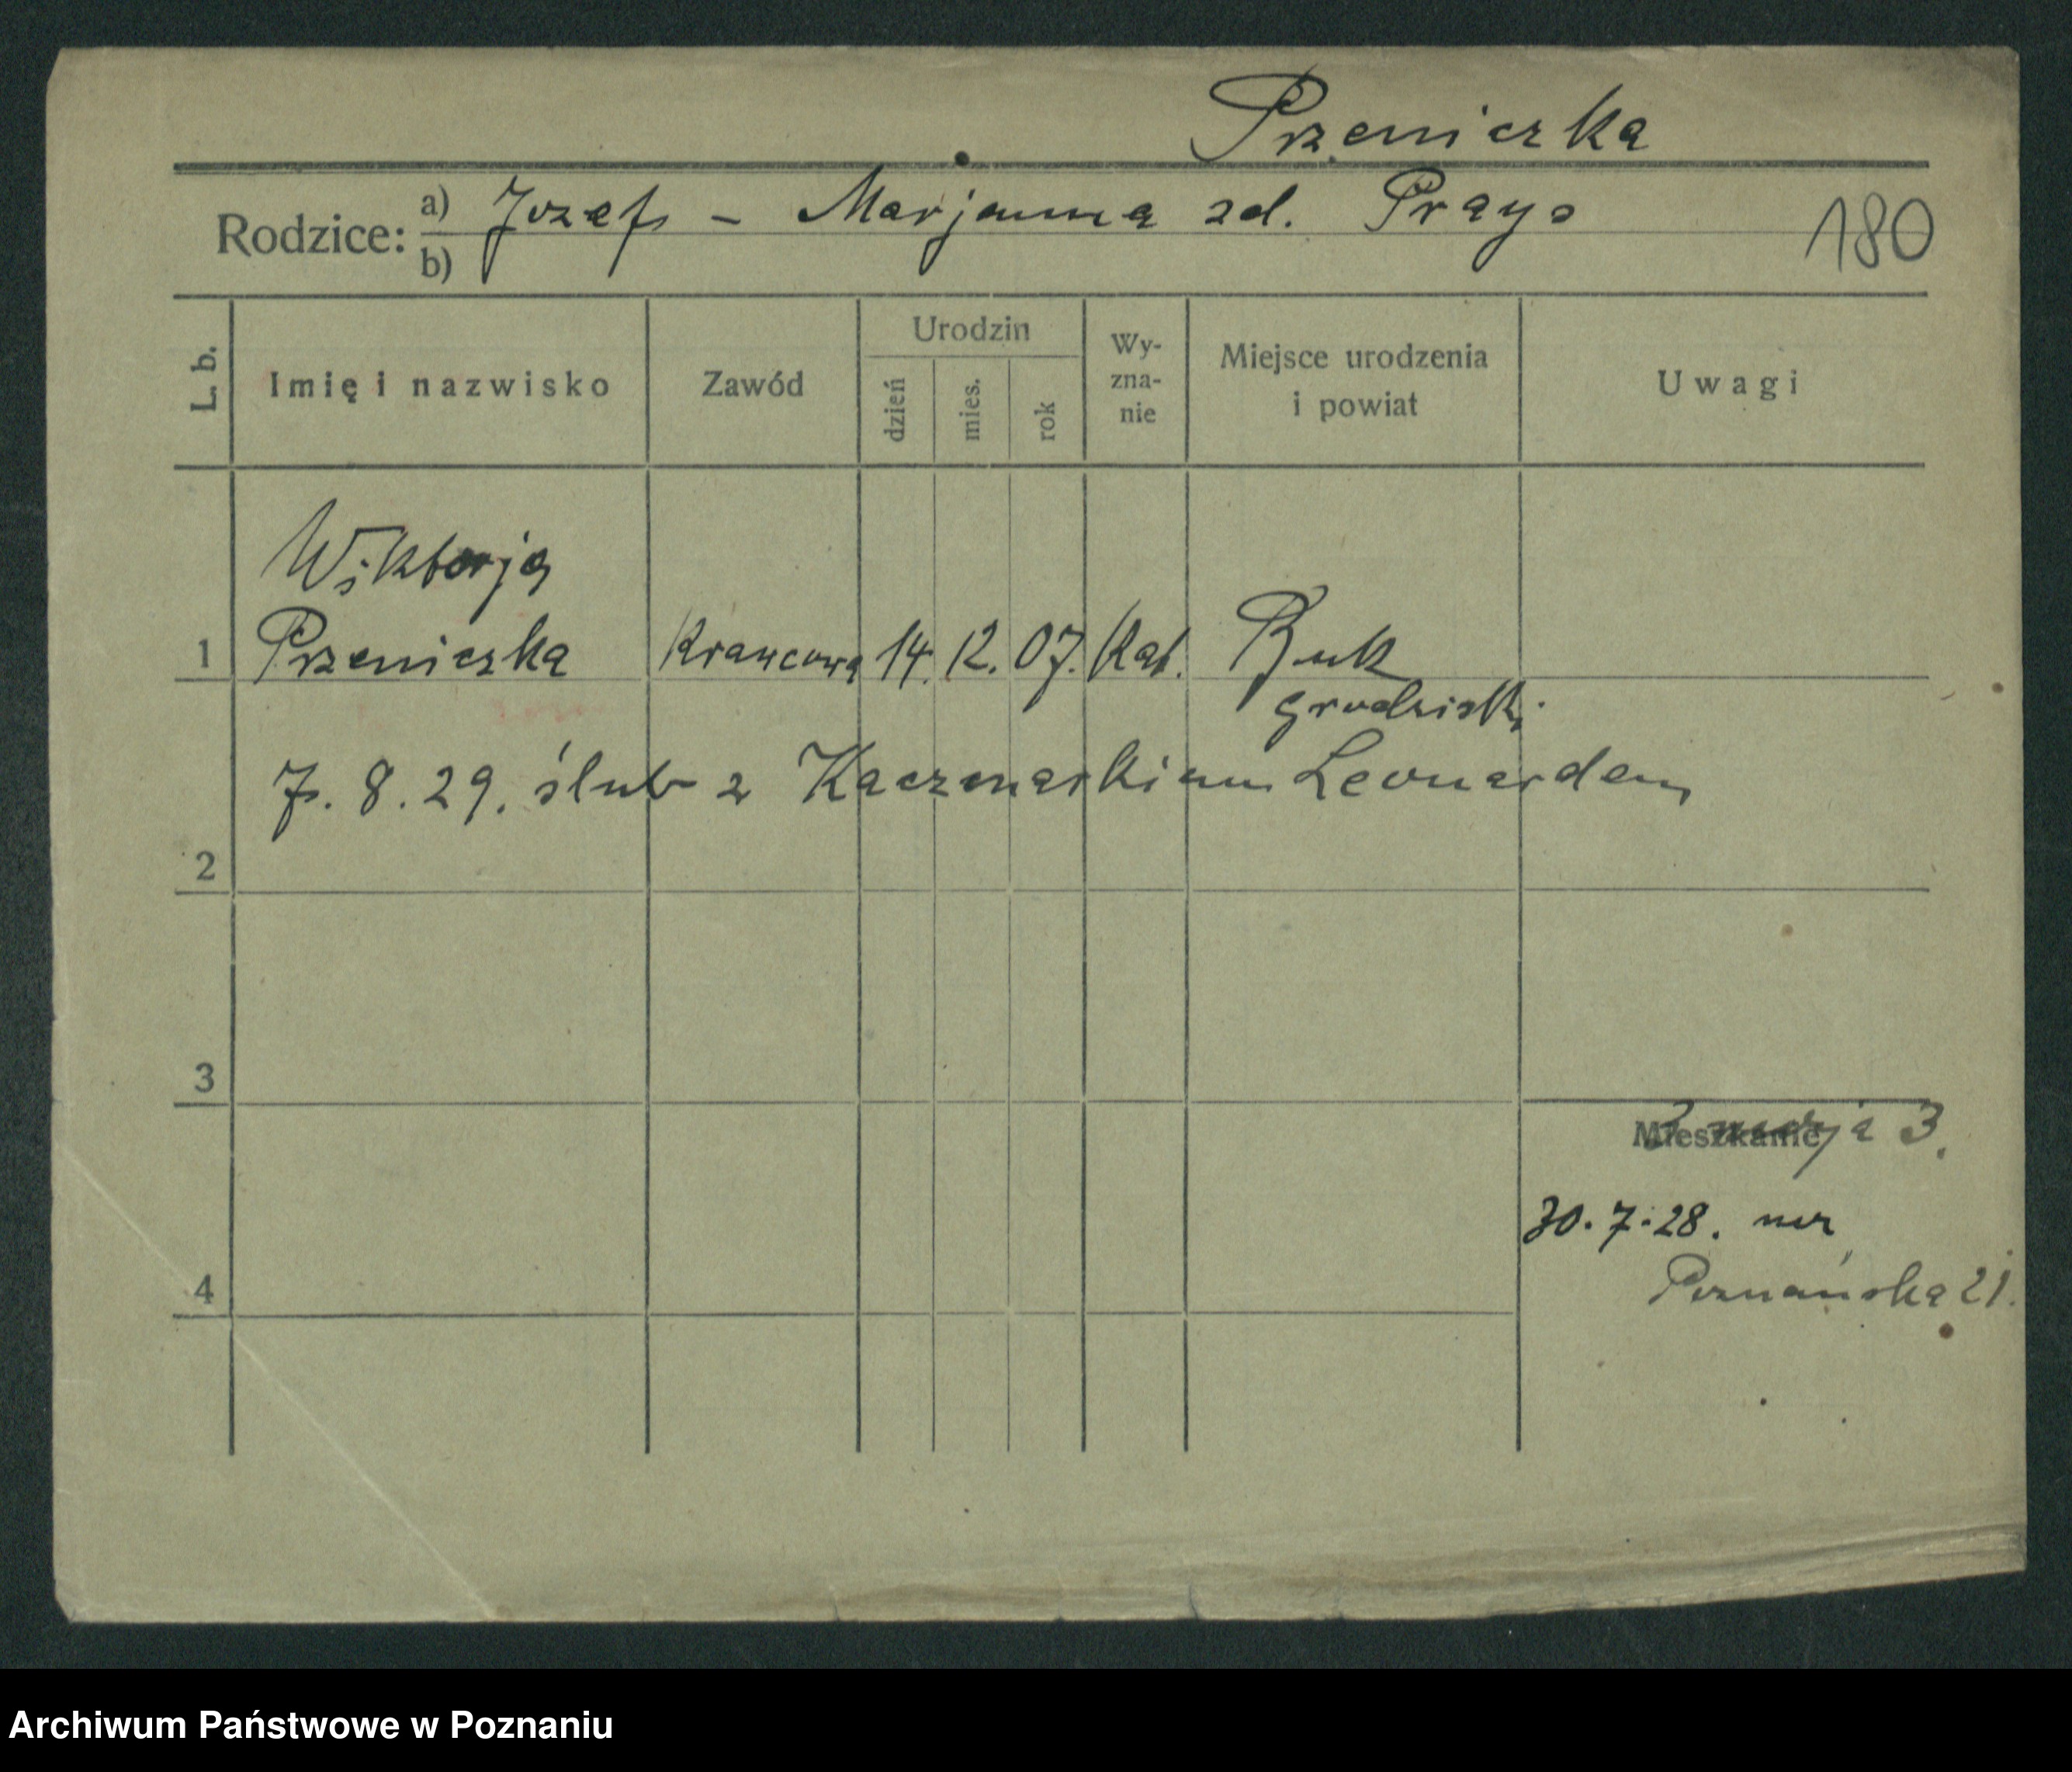 Przeniczka
Rodzice: a) Jozef - Marjanna zd.
b)
180
L. b.
Imię i nazwisko
Zawód
Urodzin
dzień
mies.
rok
Wy-
zna-
nie
Miejsce urodzenia
i powiat
Uwagi
Wiktorja
1 Przeniczka Krawcowa 14. 12. 07. Kat. Buk
grodziski
7. 8. 29. ślub z Kaczmarkiem Leonardem
2
3
Mieszkanie
3 maja 3.
30.7.28.
Poznańska 21.
4
Archiwum Państwowe w Poznaniu